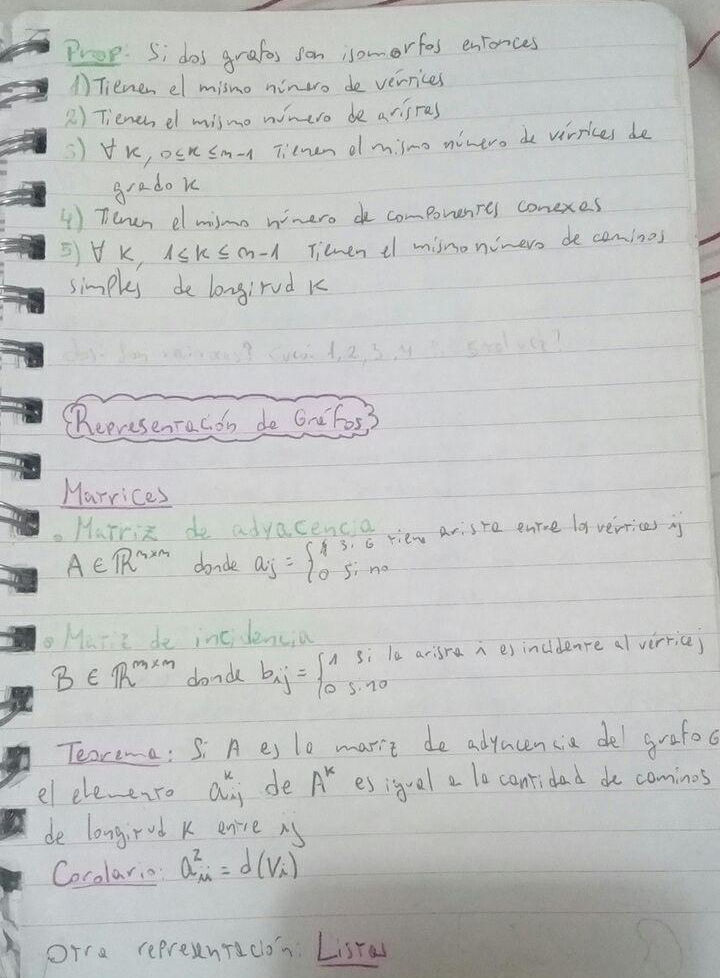 Prop: Si dos grafos son isomorfos entonces
1) Tienen el mismo número de vértices
2) Tienen el mismo número de aristas
3) ∀ K, 0≤K≤n-1 Tienen el mismo número de vértices de
grado K
4) Tienen el mismo número de componentes conexas
5) ∀ K, 1≤K≤n-1 Tienen el mismo número de caminos
simples de longitud K
1, 2, 3, 4
Representación de Gráfos
Matrices
• Matriz de adyacencia
A ∈ ℝⁿˣⁿ donde aij = {1 si G tiene arista entre los vértices ij
0 si no
• Matiz de incidencia
B ∈ ℝᵐˣⁿ donde bij = {1 si la arista i es incidente al vértice j
0 si no
Teorema: Si A es la matriz de adyacencia del grafo G
el elemento aᵏij de Aᵏ es igual a la cantidad de caminos
de longitud K entre ij
Corolario: a²ii = d(Vi)
Otra representación: Listas